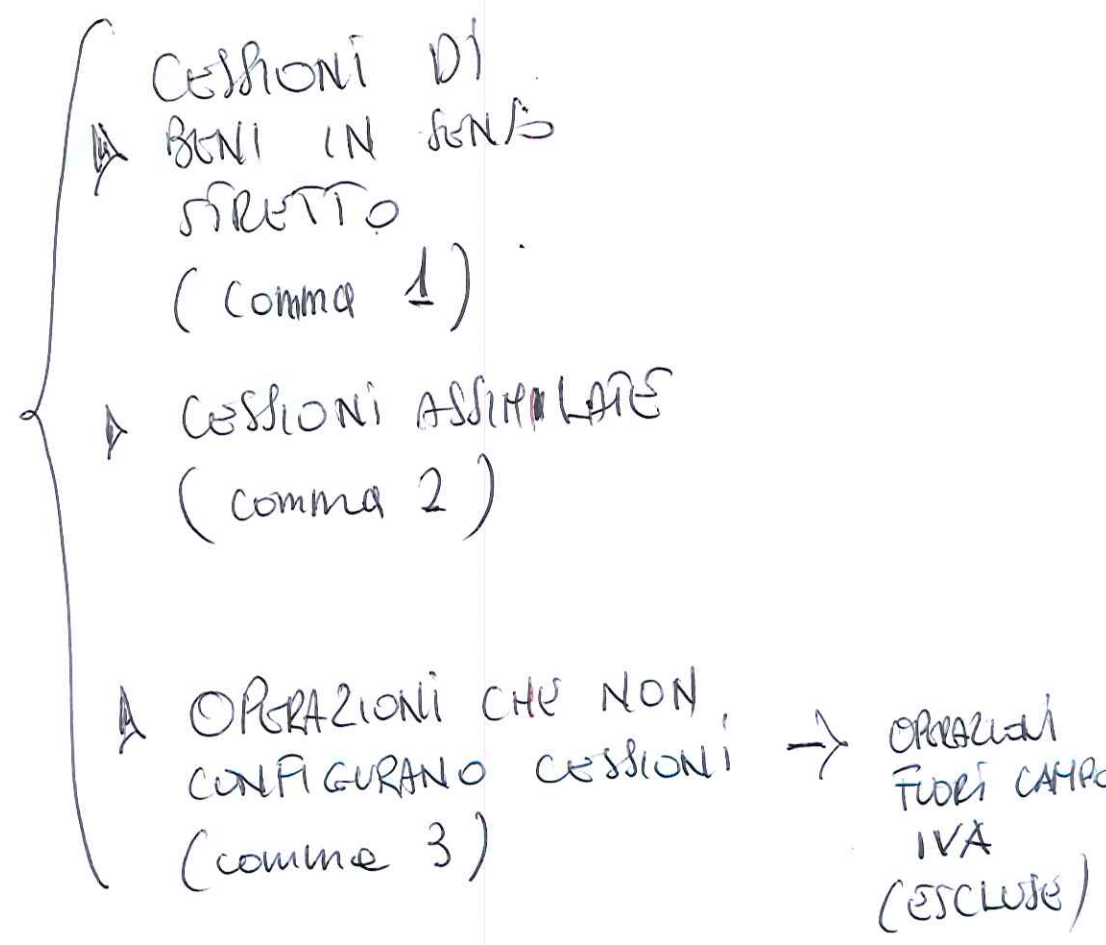 CESSIONI DI
BENI IN SENSO
STRETTO
(comma 1)
CESSIONI ASSIMILATE
(comma 2)
OPERAZIONI CHE NON
CONFIGURANO CESSIONI → OPERAZIONI
(comma 3)
FUORI CAMPO
IVA
(ESCLUSE)